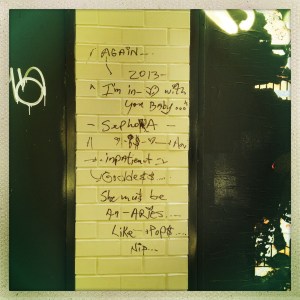 AGAIN...
2013-
I'm in- with
your Baby..."
- SephorA -
- inpatient -
Goddess
She must be
An - ARIES...
Like - POP$
Nip...